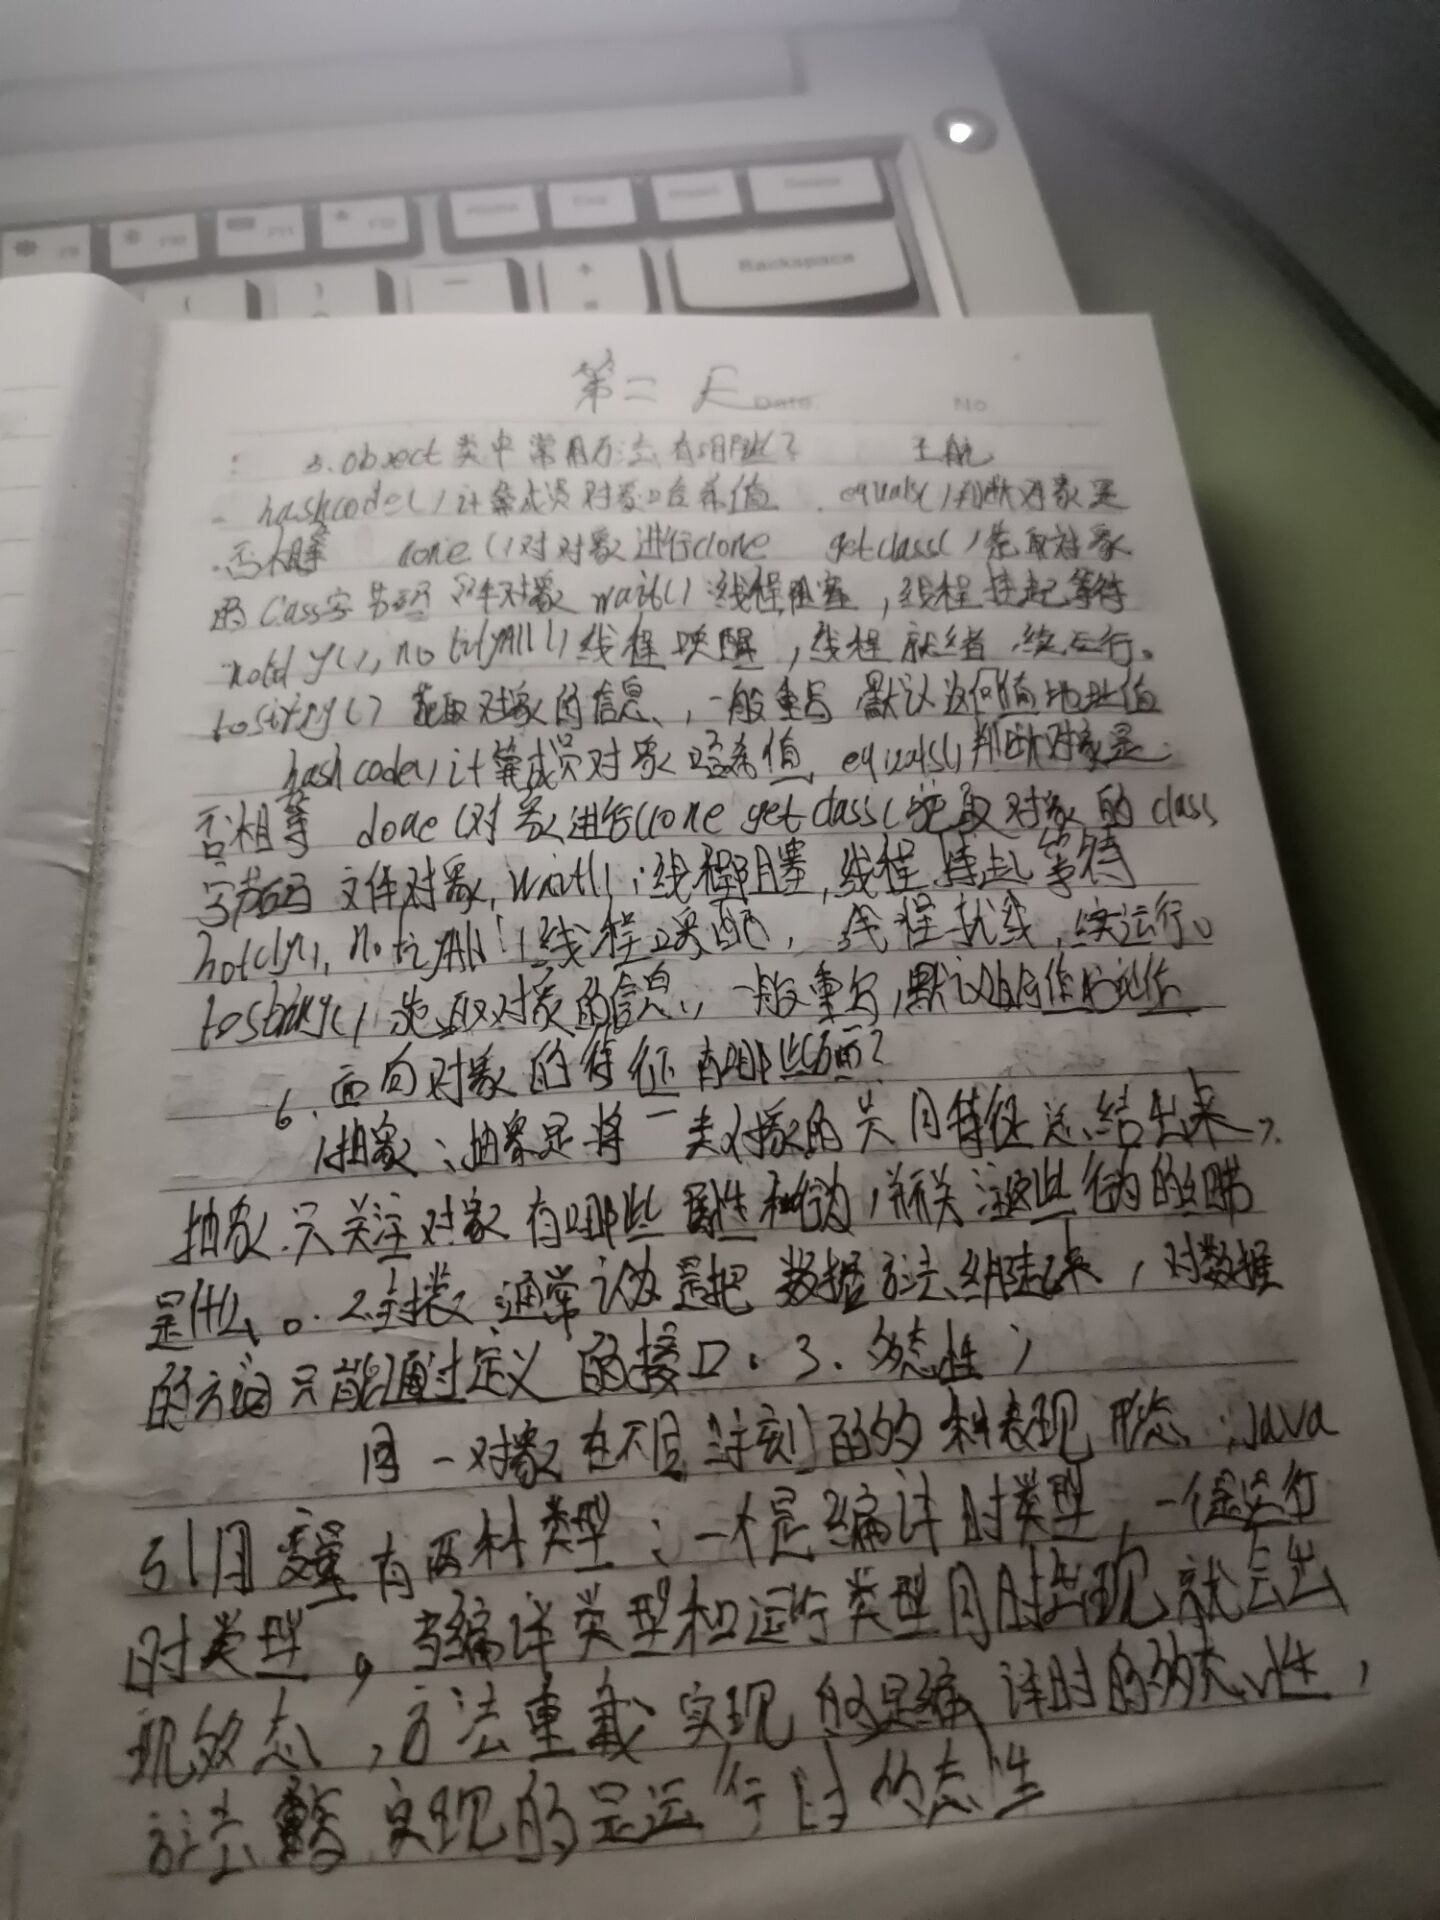 Home
End
Insert
Delete
Backspace
第二天 Date. No.
5. object 类中常用方法有哪些? 王航
hashcode() 计算成员对象哈希值. equals() 判断对象是
否相等 clone() 对对象进行clone getclass() 获取对象
的 Cass字节码文件对象 wait() 线程阻塞, 线程挂起等待
notify(), notifyAll() 线程唤醒, 线程就绪 续运行。
tostring() 获取对象的信息, 一般重写 默认返回值地址值
hashcode() 计算成员对象哈希值, equals() 判断对象是
否相等 clone(对象进行clone getclass(获取对象的class
字节码文件对象, wait(); 线程阻塞, 线程挂起等待
线程唤醒, 线程 续运行。
tostring() 获取对象的信息, 一般重写, 默认返回值
6. 面向对象的特征有哪些方面?
1抽象: 抽象是将一类对象的共同特征总结出来,
抽象只关注对象有哪些属性和行为, 并不关注这些行为的细节
是什么。 2.封装: 通常认为是把数据方法绑起来, 对数据
的访问只能通过定义的接口. 3. 多态性;
同一对象在不同时刻的多种表现形态; Java
引用变量有两种类型: 一个是编译时类型, 一个是运行
时类型, 当编译类型和运行类型同时出现就会出
现多态, 方法重载实现的是编译时的多态性,
方法重写实现的是运行时多态性